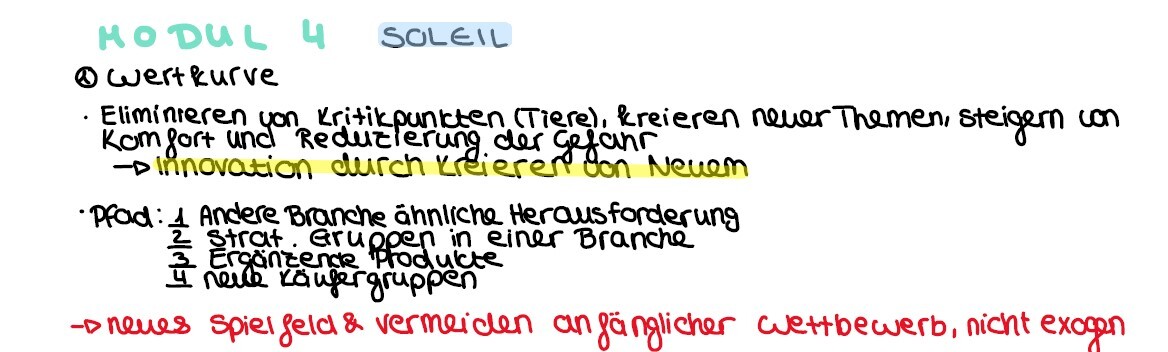 MODUL 4 SOLEIL
① Wertkurve
· Eliminieren von Kritikpunkten (Tiere), kreieren neuer Themen, steigern von
Komfort und Reduzierung der Gefahr
→ Innovation durch Kreieren von Neuem
· Pfad: 1 Andere Branche ähnliche Herausforderung
2 Strat. Gruppen in einer Branche
3 Ergänzende Produkte
4 neue Käufergruppen
→ neues Spielfeld & vermeiden anfänglicher Wettbewerb, nicht exogen